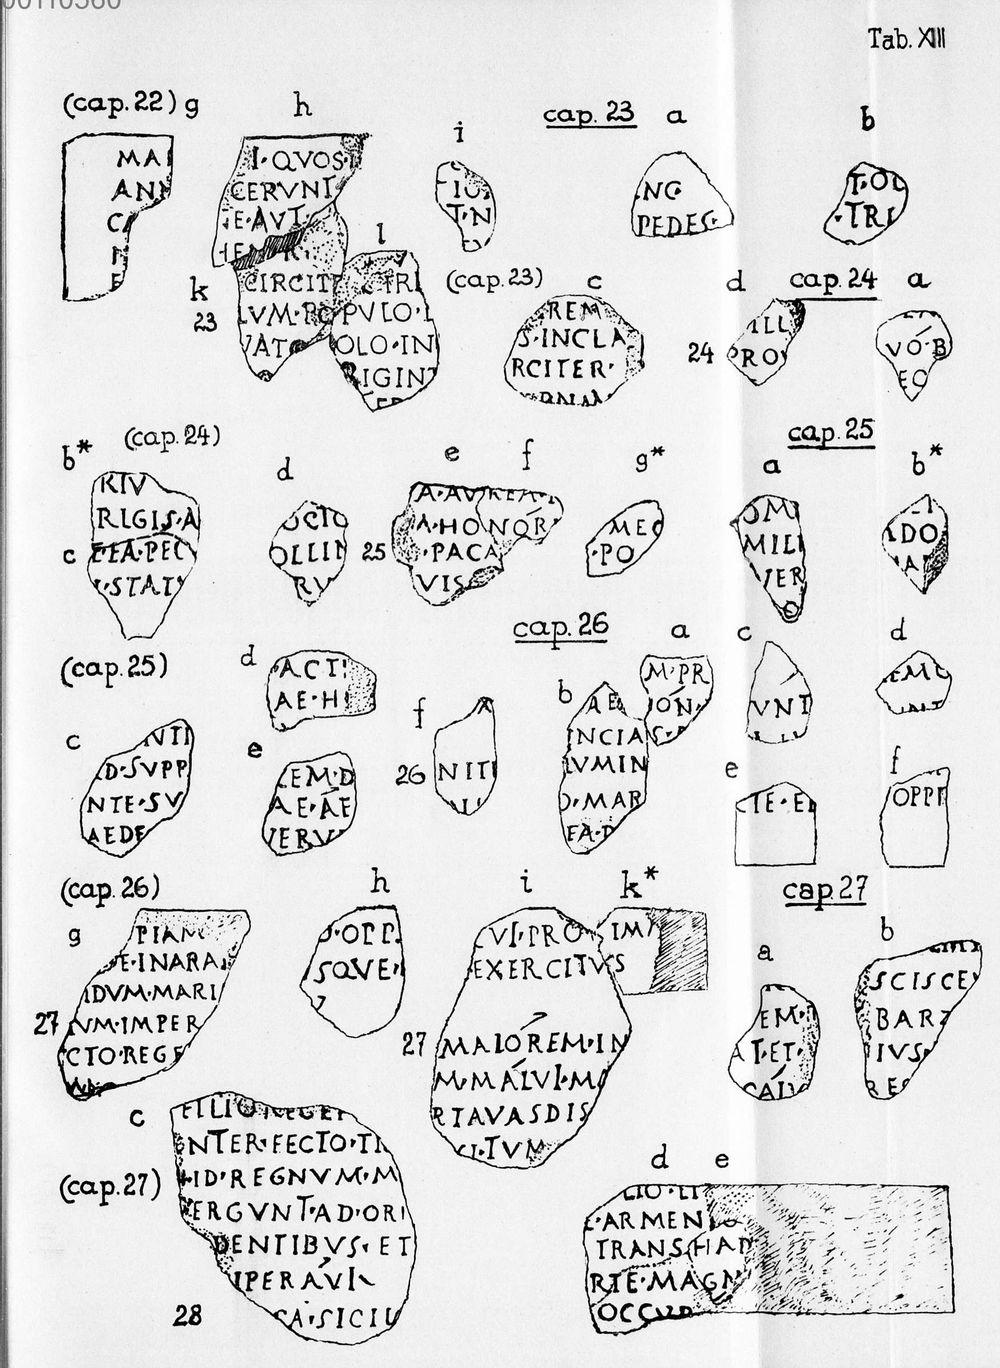 Tab. XIII
(cap. 22) g
MA
AN
h
I·QVOS
CERVNT
E·AVT
i
T·N
cap. 23
a
NC
PEDES·
b
T·O
·TRI
k
23
CIRCIT
LVM·PO
VAT
l
TRI
PVLO·
OLO·IN
RIGINT
(cap. 23)
c
REM
S·INCLA
RCITER·
d
24
ILL
PRO
cap. 24
a
VÓ·B
EO
(cap. 24)
b*
RIV
RIGIS·A
c
EA·PEC
·STAT
d
OCIO
OLLIN
RV
e
f
25
A·AVREA·
A·HONÓR
·PACA
VIS
g*
MEO
·PO
cap. 25
a
OM
MILI
VER
O
b*
DO
A
(cap. 25)
c
NTI
D·SVPP
NTE·SV
AEDE
d
ACT
AE·H
e
EM·D
AE·ÁE
VERV
f
26
A
NITI
cap. 26
a
M·PR
IÓN·
S·
b
AE
INCIA
LVMIN
O·MAR
EA·D
c
VNT
d
EMO
e
TE·E
f
OPPI
(cap. 26)
g
27
PIAM
E·INARA
IDVM·MARI
VM·IMPER
CTO·REGE
h
O·OPP
SQVE·
i
k*
27
VI·PRO
IM
EXERCITVS
MAIÓREM·IN
M·MÁLVI·M
RTAVASDIS
I·TVM
cap. 27
a
EM·
AT·ET·
CAIV
b
SCISCE
BARZ
IVS
REG
(cap. 27)
c
28
FILIO·REGE
NTER·FECTO·TI
ID·REGNVM·M
ERGVNT·AD·ORI
DENTIBVS·ET
IPERÁVI
CA·SICIL
d
e
LIO·TI
E·ARMEN
TRANS·HAD
RTE·MAGN
OCCVP